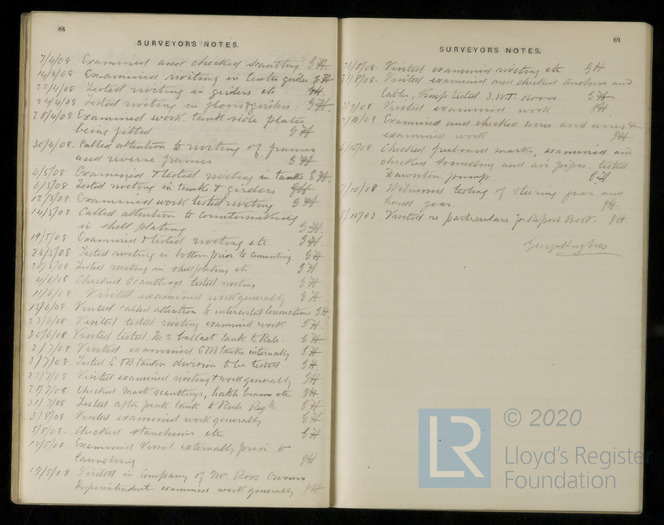 68
SURVEYORS' NOTES.
7/4/08 Examined and checked scantling GH
14/4/08 Examined riveting in centre girder GH
22/4/08 Tested riveting in girders etc GH
24/4/08 Tested riveting in floors & girders GH
28/4/08 Examined work tank side plates
being fitted GH
30/4/08. Called attention to riveting of frames
and reverse frames GH
4/5/08 Examined & tested riveting in tanks GH
6/5/08 Tested riveting in tank & girders GH
12/5/08 Examined work tested riveting GH
14/5/08 Called attention to countersinking
in shell plating GH
19/5/08 Examined & tested riveting etc GH
26/5/08 Tested riveting in bottom prior to cementing GH
Tested riveting in shell plating etc GH
Checked scantlings tested riveting GH
Visited examined work generally GH
Visited called attention to intercostal connections GH
Visited tested riveting examined work GH
30/6/08 Visited tested No 2 ballast tank to Rule GH
2/7/08 Visited examined internally GH
/7/08 Tested division to be tested GH
/7/08 Visited examined riveting & work generally GH
28/7/08 Checked mast scantlings, hatch beams etc GH
31/7/08 Tested after peak tank to Rule GH
/8/08 Visited examined work generally GH
/8/08. Checked stanchions etc GH
12/8/08 Examined Vessel externally prior to
Launching GH
19/8/08 Visited in Company of Mr Ross Owners
Superintendent examined work generally GH
69
SURVEYORS' NOTES.
/8/08. Visited examined riveting etc GH
/8/08. Visited examined and checked anchors and
Cable, Pump tested S.W.T. doors GH
/9/08 Visited examined work GH
Examined and checked and
examined work GH
/08 Checked freeboard marks, examined and
checked sounding and air pipes. tested
Downton pump. GH
7/10/08 Witnessed testing of steering gear and
hand gear. GH
/10/08 Visited re particulars for Report Book. GH
George Hughes
LR
© 2020
Lloyd's Register
Foundation